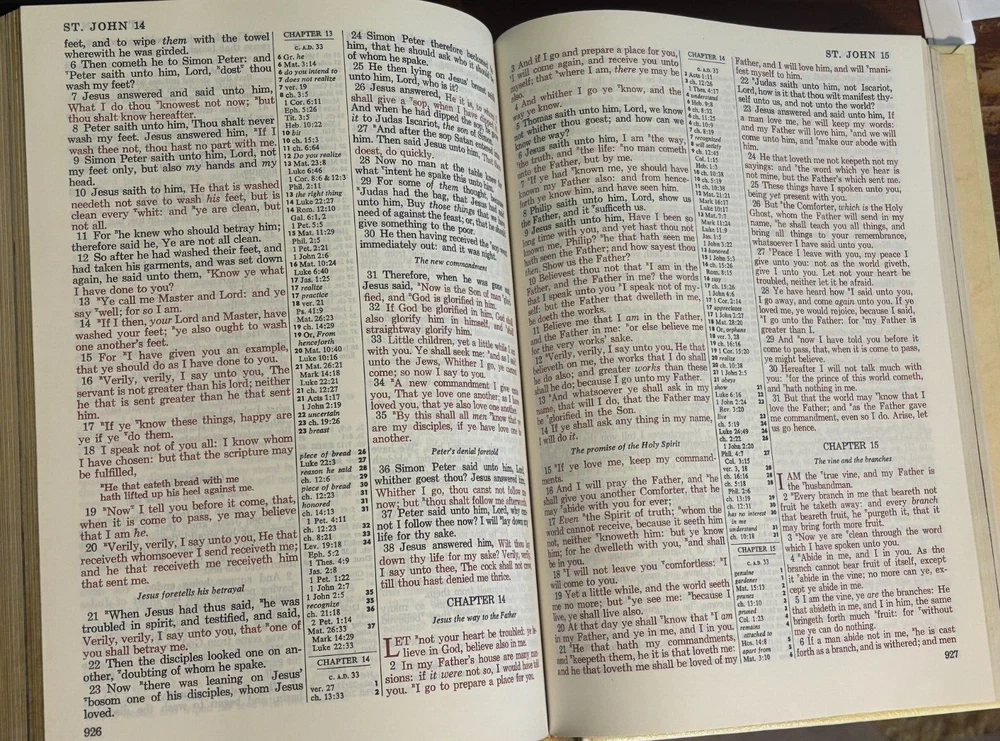 ST. JOHN 14
feet, and to wipe them with the towel
wherewith he was girded.
6 Then cometh he to Simon Peter: and
Peter saith unto him, Lord, dost thou
wash my feet?
7 Jesus answered and said unto him,
What I do thou knowest not now; but
thou shalt know hereafter.
8 Peter saith unto him, Thou shalt never
wash my feet. Jesus answered him, If I
wash thee not, thou hast no part with me.
9 Simon Peter saith unto him, Lord, not
my feet only, but also my hands and my
head.
10 Jesus saith to him, He that is washed
needeth not save to wash his feet, but is
clean every whit: and ye are clean, but
not all.
11 For he knew who should betray him;
therefore said he, Ye are not all clean.
12 So after he had washed their feet, and
had taken his garments, and was set down
again, he said unto them, Know ye what
I have done to you?
13 Ye call me Master and Lord: and ye
say well; for so I am.
14 If I then, your Lord and Master, have
washed your feet; ye also ought to wash
one another's feet.
15 For I have given you an example,
that ye should do as I have done to you.
16 Verily, verily, I say unto you, The
servant is not greater than his lord; neither
he that is sent greater than he that sent
him.
17 If ye know these things, happy are
ye if ye do them.
18 I speak not of you all: I know whom
I have chosen: but that the scripture may
be fulfilled,
He that eateth bread with me
hath lifted up his heel against me.
19 Now I tell you before it come, that,
when it is come to pass, ye may believe
that I am he.
20 Verily, verily, I say unto you, He that
receiveth whomsoever I send receiveth me;
and he that receiveth me receiveth him
that sent me.
Jesus foretells his betrayal
21 When Jesus had thus said, he was
troubled in spirit, and testified, and said,
Verily, verily, I say unto you, that one of
you shall betray me.
22 Then the disciples looked one on an-
other, doubting of whom he spake.
23 Now there was leaning on Jesus'
bosom one of his disciples, whom Jesus
loved.
926
CHAPTER 13
C. A.D. 33
6 Gr. he
6 Mat. 3:14
6 do you intend to
7 does not realize
7 ver. 19
8 ch. 3:5
1 Cor. 6:11
Eph. 5:26
Tit. 3:5
Heb. 10:22
10 bit
10 ch. 15:3
11 ch. 6:64
12 Do you realize
13 Mat. 23:8
Luke 6:46
1 Cor. 8:6 & 12:3
Phil. 2:11
13 the right thing
14 Luke 22:27
14 Rom. 12:10
Gal. 6:1, 2
1 Pet. 5:5
15 Mat. 11:29
Phil. 2:5
1 Pet. 2:21
1 John 2:6
16 Mat. 10:24
Luke 6:40
17 Jas. 1:25
17 realize
17 practice
18 ver. 21
Ps. 41:9
Mat. 26:23
19 ch. 14:29
19 Or, From
henceforth
20 Mat. 10:40
Luke 10:16
21 Mat. 26:21
Mark 14:18
Luke 22:21
21 ch. 12:27
21 Acts 1:17
1 John 2:19
22 uncertain
23 ch. 19:26
23 breast
piece of bread 26
Luke 22:3 27
reason he said 28
ch. 12:6 29
piece of bread 30
ch. 12:23 31
honored 31
ch. 14:13 31
1 Pet. 4:11
ch. 12:23 32
ch. 8:21 33
Lev. 19:18 34
Eph. 5:2
1 Thes. 4:9
Jas. 2:8
1 Pet. 1:22
1 John 2:7
1 John 2:5 35
recognize 35
ch. 21:18 36
2 Pet. 1:14
Mat. 26:33 37
Mark 14:29
Luke 22:33
CHAPTER 14
C. A.D. 33
ver. 27 1
ch. 13:33 2
24 Simon Peter therefore
him, that he should ask who it should
of whom he spake.
25 He then lying on Jesus' breast
unto him, Lord, who is it?
26 Jesus answered, He it is, to
shall give a sop, when I have
And when he had dipped the sop,
it to Judas Iscariot, the son of
27 And after the sop Satan entered
him. Then said Jesus unto him,
doest, do quickly.
28 Now no man at the table knew
what intent he spake this unto him.
29 For some of them thought, because
Judas had the bag, that Jesus
unto him, Buy those things that
need of against the feast; or, that
give something to the poor.
30 He then having received the sop
immediately out: and it was night.
The new commandment
31 Therefore, when he was gone
Jesus said, Now is the Son of man
fied, and God is glorified in him.
32 If God be glorified in him, God
also glorify him in himself, and
straightway glorify him.
33 Little children, yet a little while I
with you. Ye shall seek me: and as I
unto the Jews, Whither I go, ye
come; so now I say to you.
34 A new commandment I give
you, That ye love one another; as I
loved you, that ye also love one another.
35 By this shall all men know that
are my disciples, if ye have love
another.
Peter's denial foretold
36 Simon Peter said unto him, Lord,
whither goest thou? Jesus answered him,
Whither I go, thou canst not follow me
now; but thou shalt follow me afterwards.
37 Peter said unto him, Lord, why can
not I follow thee now? I will lay down my
life for thy sake.
38 Jesus answered him, Wilt thou lay
down thy life for my sake? Verily, verily,
I say unto thee, The cock shall not crow,
till thou hast denied me thrice.
CHAPTER 14
Jesus the way to the Father
LET not your heart be troubled: ye be-
lieve in God, believe also in me.
2 In my Father's house are many man-
sions: if it were not so, I would have told
you. I go to prepare a place for you.
3 And if I go and prepare a place for you,
I will come again, and receive you unto
myself; that where I am, there ye may be
also.
4 And whither I go ye know, and the
way ye know.
5 Thomas saith unto him, Lord, we know
not whither thou goest; and how can we
know the way?
6 Jesus saith unto him, I am the way,
the truth, and the life: no man cometh
unto the Father, but by me.
7 If ye had known me, ye should have
known my Father also: and from hence-
forth ye know him, and have seen him.
8 Philip saith unto him, Lord, show us
the Father, and it sufficeth us.
9 Jesus saith unto him, Have I been so
long time with you, and yet hast thou not
known me, Philip? he that hath seen me
hath seen the Father; and how sayest thou
then, Show us the Father?
10 Believest thou not that I am in the
Father, and the Father in me? the words
that I speak unto you I speak not of my-
self: but the Father that dwelleth in me,
he doeth the works.
11 Believe me that I am in the Father,
and the Father in me: or else believe me
for the very works' sake.
12 Verily, verily, I say unto you, He that
believeth on me, the works that I do shall
he do also; and greater works than these
shall he do; because I go unto my Father.
13 And whatsoever ye shall ask in my
name, that will I do, that the Father may
be glorified in the Son.
14 If ye shall ask any thing in my name,
I will do it.
The promise of the Holy Spirit
15 If ye love me, keep my command-
ments.
16 And I will pray the Father, and he
shall give you another Comforter, that he
may abide with you for ever;
17 Even the Spirit of truth; whom the
world cannot receive, because it seeth him
not, neither knoweth him: but ye know
him; for he dwelleth with you, and shall
be in you.
18 I will not leave you comfortless: I
will come to you.
19 Yet a little while, and the world seeth
me no more; but ye see me: because I
live, ye shall live also.
20 At that day ye shall know that I am
in my Father, and ye in me, and I in you.
21 He that hath my commandments,
and keepeth them, he it is that loveth me:
and he that loveth me shall be loved of my
CHAPTER 14
C. A.D. 33
3 Acts 1:11
3 ch. 12:26
1 Thes. 4:17
4 understand
6 Heb. 9:8
CHAPTER 15
C. A.D. 33
ST. JOHN 15
Father, and I will love him, and will mani-
fest myself to him.
22 Judas saith unto him, not Iscariot,
Lord, how is it that thou wilt manifest thy-
self unto us, and not unto the world?
23 Jesus answered and said unto him, If
a man love me, he will keep my words:
and my Father will love him, and we will
come unto him, and make our abode with
him.
24 He that loveth me not keepeth not my
sayings: and the word which ye hear is
not mine, but the Father's which sent me.
25 These things have I spoken unto you,
being yet present with you.
26 But the Comforter, which is the Holy
Ghost, whom the Father will send in my
name, he shall teach you all things, and
bring all things to your remembrance,
whatsoever I have said unto you.
27 Peace I leave with you, my peace I
give unto you: not as the world giveth,
give I unto you. Let not your heart be
troubled, neither let it be afraid.
28 Ye have heard how I said unto you,
I go away, and come again unto you. If ye
loved me, ye would rejoice, because I said,
I go unto the Father: for my Father is
greater than I.
29 And now I have told you before it
come to pass, that, when it is come to pass,
ye might believe.
30 Hereafter I will not talk much with
you: for the prince of this world cometh,
and hath nothing in me.
31 But that the world may know that I
love the Father; and as the Father gave
me commandment, even so I do. Arise, let
us go hence.
CHAPTER 15
The vine and the branches
I AM the true vine, and my Father is
the husbandman.
2 Every branch in me that beareth not
fruit he taketh away: and every branch
that beareth fruit, he purgeth it, that it
may bring forth more fruit.
3 Now ye are clean through the word
which I have spoken unto you.
4 Abide in me, and I in you. As the
branch cannot bear fruit of itself, except
it abide in the vine; no more can ye, ex-
cept ye abide in me.
5 I am the vine, ye are the branches: He
that abideth in me, and I in him, the same
bringeth forth much fruit: for without
me ye can do nothing.
6 If a man abide not in me, he is cast
forth as a branch, and is withered; and men
927